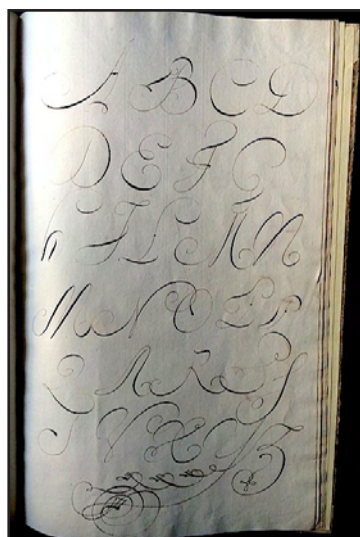 A B C D
D E F G
H I L M N
M N O P P
Q A R S
T V X Y Z